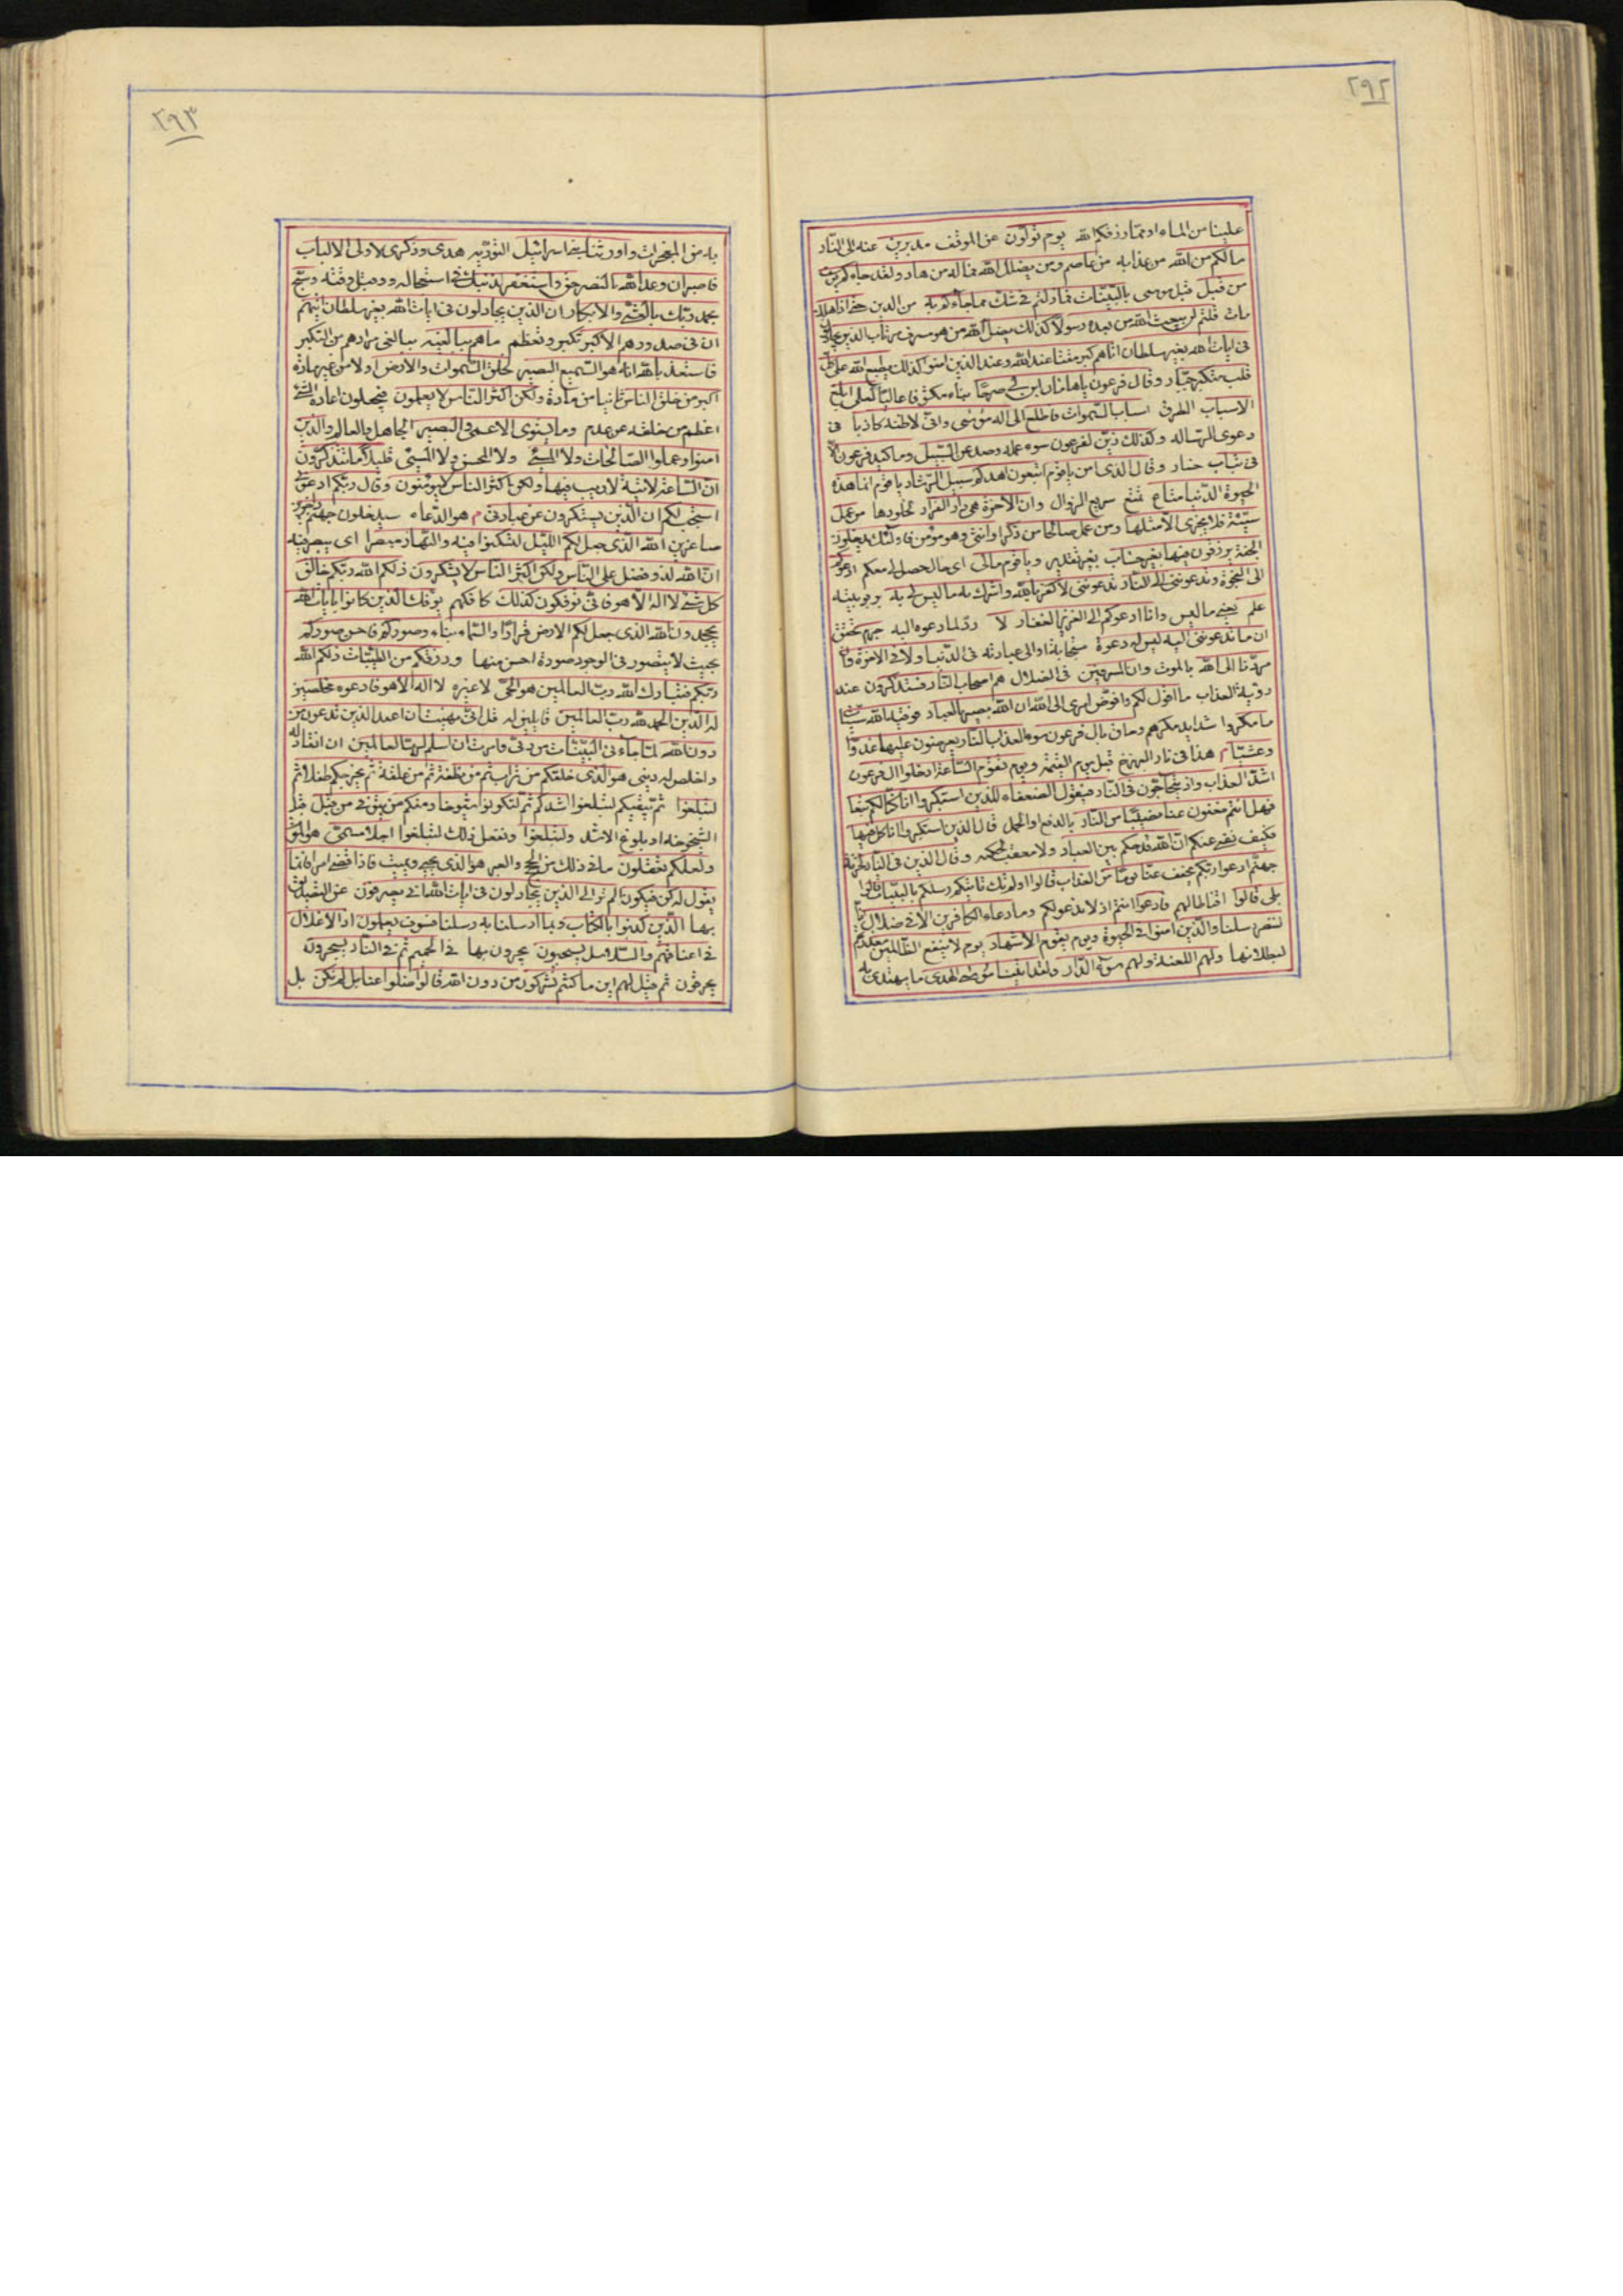 ٢٩٢
علينا من الماء او مما رزقكم الله يوم تولون عن الموقف مدبرين عنه الى النار
مالكم من الله من عذابه من عاصم ومن يضلل الله فما له من هاد ولقد جاءكم يوسف
من قبل قبل موسى بالبينات فما زلتم في شك مما جاءكم به من الدين حتى اذا هلك
مات قلتم لن يبعث الله من بعده رسولا كذلك يضل الله من هو مسرف مرتاب الذين يجادلون
في ايات الله بغير سلطان اتاهم كبر مقتا عند الله وعند الذين امنوا كذلك يطبع الله على كل
قلب متكبر جبار وقال فرعون ياهامان ابن لي صرحا بناء مكشوفا عاليا لعلى ابلغ
الاسباب الطرق اسباب السموات فاطلع الى اله موسى وانى لاظنه كاذبا في
دعوى الرساله وكذلك زين لفرعون سوء عمله وصد عن السبيل وما كيد فرعون الا
في تباب خسار وقال الذى امن ياقوم اتبعون اهدكم سبيل الرشاد ياقوم انما هذه
الحيوة الدنيا متاع تمتع سريع الزوال وان الاخرة هي دار القرار لخلودها من عمل
سيئة فلا يجزى الا مثلها ومن عمل صالحا من ذكر او انثى وهو مؤمن فاولئك يدخلون
الجنة يرزقون فيها بغير حساب بغير تقدير وياقوم مالى اى ما الحصل لى معكم ادعوكم
الى النجوة وتدعوننى الى النار تدعوننى لاكفر بالله واشرك به ما ليس لى به بربوبيته
علم يعنى ما ليس وانا ادعوكم الى العزيز الغفار لا رد لما دعوه اليه جرم تحقق
ان ما تدعوننى اليه ليس له دعوة مستجابة او الى عبادته في الدنيا ولا في الاخرة وان
مردنا الى الله بالموت وان المسرفين في الضلال هم اصحاب النار فستذكرون عند
رؤية العذاب ما اقول لكم وافوض امرى الى الله ان الله بصير بالعباد فوقيه الله سيئات
ما مكروا شدايد مكرهم وحاق بال فرعون سوء العذاب النار يعرضون عليها غدوا
وعشيا هذا في نار البرزخ قبل يوم القيمة ويوم تقوم الساعة ادخلوا ال فرعون
اشد العذاب واذ يتحاجون في النار فيقول الضعفاء للذين استكبروا انا كنا لكم تبعا
فهل انتم مغنون عنا نصيبا من النار بالدفع او الحمل قال الذين استكبروا انا كل فيها
فكيف نغنى عنكم ان الله قد حكم بين العباد ولا معقب لحكمه وقال الذين في النار لخزنة
جهنم ادعوا ربكم يخفف عنا يوما من العذاب قالوا اولم تك تاتيكم رسلكم بالبينات قالوا
بلى قالوا اقناطا لهم فادعوا انتم اذ لا ندعو لكم وما دعاء الكافرين الا في ضلال انا
لننصر رسلنا والذين امنوا في الحيوة ويوم يقوم الاشهاد يوم لا ينفع الظالمين معذرتهم
لبطلانها ولهم اللعنة ولهم سوء الدار ولقد اتينا موسى الهدى ما يهتدى به
٢٩٣
به من المعجزات واورثنا بنى اسرائيل التورية هدى وذكرى لاولى الالباب
فاصبر ان وعد الله بالنصر حق واستغفر لذنبك في استعجاله ودم قبل وقته وسبح
بحمد ربك بالعشى والابكار ان الذين يجادلون في ايات الله بغير سلطان اتيهم
ان في صدورهم الا كبر تكبر وتعظم ما هم ببالغيه ببالغى مرادهم من التكبر
فاستعذ بالله انه هو السميع البصير لخلق السموات والارض اولا من غير مادة
اكبر من خلق الناس ثانيا من مادة ولكن اكثر الناس لا يعلمون فيجعلون اعادة الشئ
اعظم من خلقه عن عدم وما يستوى الاعمى والبصير الجاهل والعالم والذين
امنوا وعملوا الصالحات ولا المسئ ولا المحسن ولا المسئ قليلا ما تتذكرون
ان الساعة لاتية لا ريب فيها ولكن اكثر الناس لا يؤمنون وقال ربكم ادعونى
استجب لكم ان الذين يستكبرون عن عبادتى هو الدعاء سيدخلون جهنم داخرين
صاغرين الله الذى جعل لكم الليل لتسكنوا فيه والنهار مبصرا اى يبصر فيه
ان الله لذو فضل على الناس ولكن اكثر الناس لا يشكرون ذلكم الله ربكم خالق
كل شئ لا اله الا هو فانى توفكون كذلك كافكهم يوفك الذين كانوا بايات الله
يجحدون الله الذى جعل لكم الارض قرارا والسماء بناء وصوركم فاحسن صوركم
بحيث لا يتصور في الوجود صورة احسن منها ورزقكم من الطيبات ذلكم الله
ربكم فتبارك الله رب العالمين هو الحى لا غيره لا اله الا هو فادعوه مخلصين
له الدين الحمد لله رب العالمين قايلين له قل انى نهيت ان اعبد الذين تدعون من
دون الله لما جاءنى البينات من ربى وامرت ان اسلم لرب العالمين ان انقاد له
واخلص له دينى هو الذى خلقكم من تراب ثم من نطفة ثم من علقة ثم يخرجكم طفلا ثم
لتبلغوا ثم يبقيكم لتبلغوا اشدكم ثم لتكونوا شيوخا ومنكم من يتوفى من قبل قبل
الشيخوخه او بلوغ الاشد ولتبلغوا ونفعل ذلك لتبلغوا اجلا مسمى هو الموت
ولعلكم تعقلون ما في ذلك من الحجج والعبر هو الذى يحيى ويميت فاذا قضى امرا فانما
يقول له كن فيكون الم تر الى الذين يجادلون في ايات الله انى يصرفون عن التصديق
بها الذين كذبوا بالكتاب وبما ارسلنا به رسلنا فسوف يعلمون اذ الاغلال
في اعناقهم والسلاسل يسحبون يجرون بها في الحميم ثم في النار يسجرون
يحرقون ثم قيل لهم اين ما كنتم تشركون من دون الله قالوا ضلوا عنا بل لم نكن بل